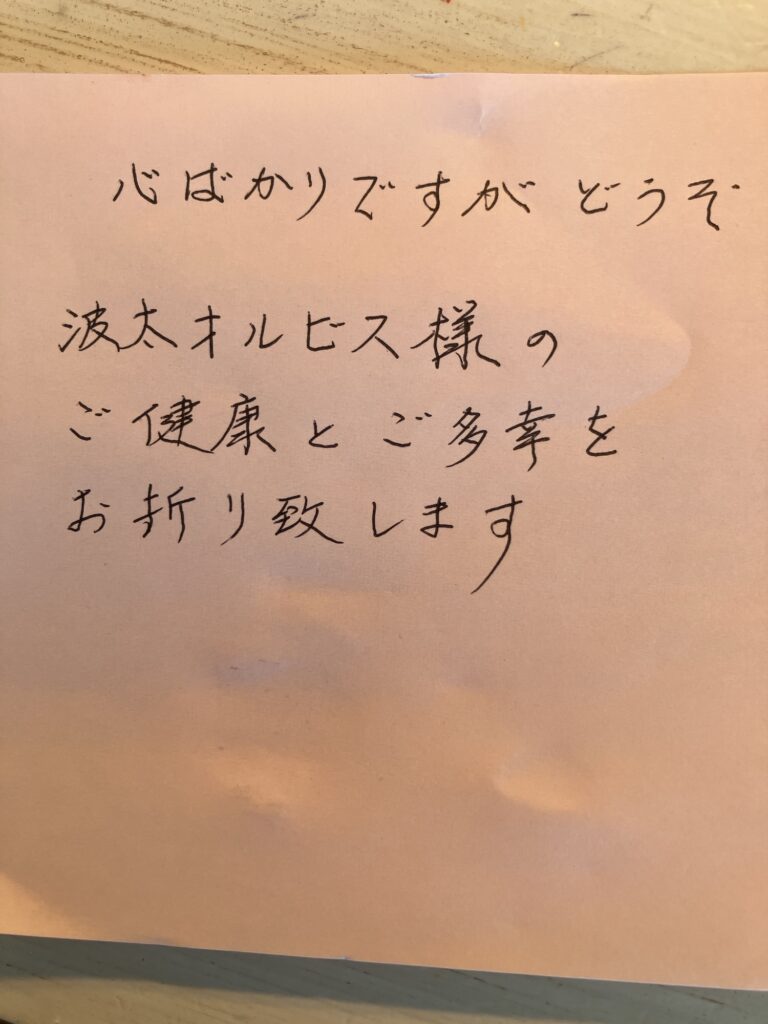 心ばかりですが どうぞ
波太オルビス様の
ご健康とご多幸を
お折り致します